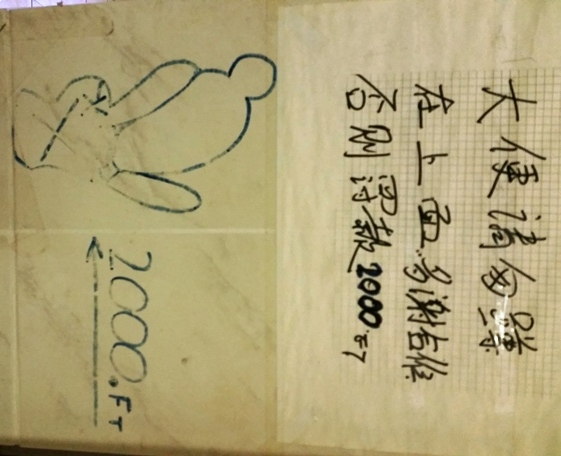 大便请勿蹲
在上面.多谢合作
否则罚款2000FT
2000.FT